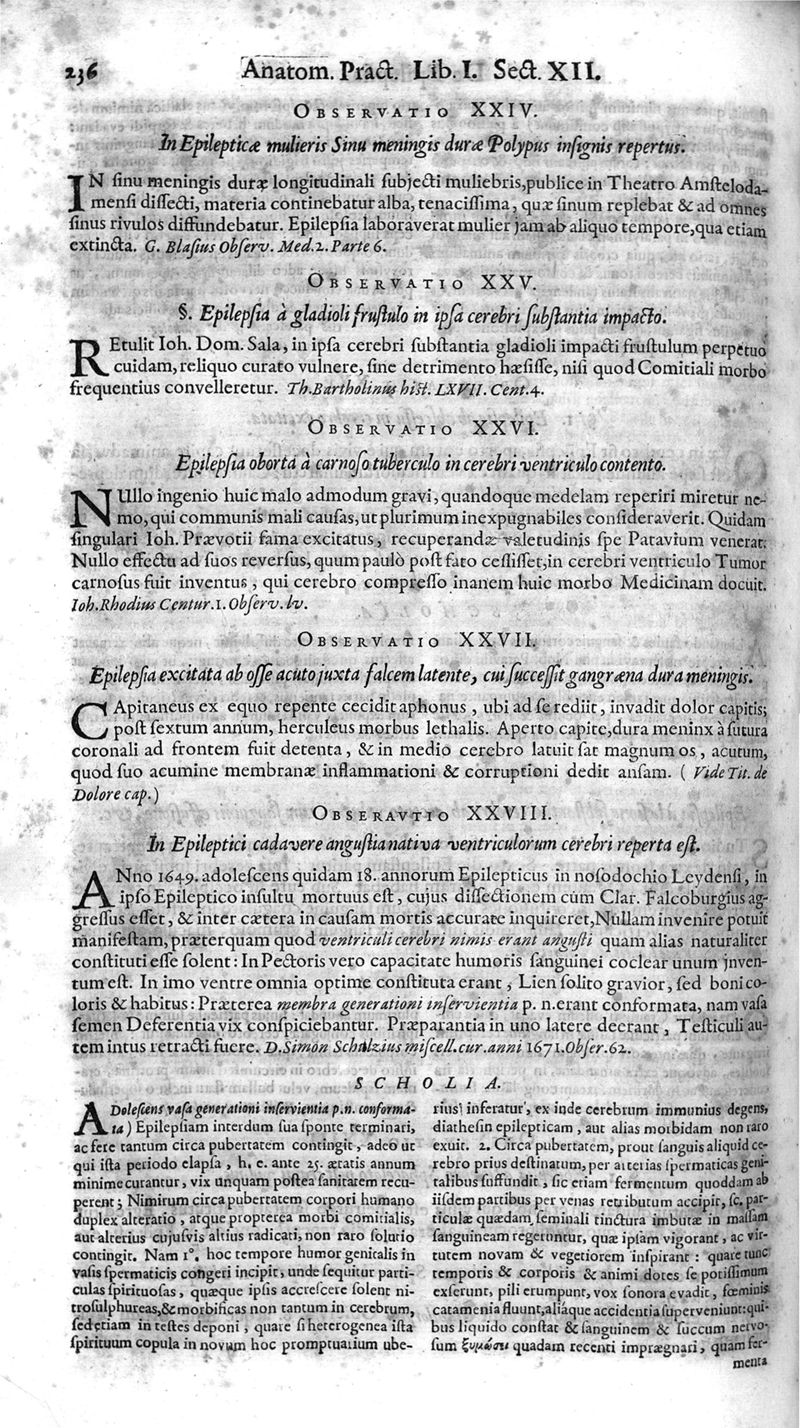 236 Anatom. Pract. Lib. I. Sect. XII.
OBSERVATIO XXIV.
In Epilepticæ mulieris Sinu meningis duræ Polypus inſignis repertus.
IN ſinu meningis duræ longitudinali ſubjecti muliebris, publice in Theatro Amſteloda-
menſi diſſecti, materia continebatur alba, tenaciſſima, quæ ſinum replebat & ad omnes
ſinus rivulos diffundebatur. Epilepſia laboraverat mulier jam ab aliquo tempore, qua etiam
extincta. G. Blaſius Obſerv. Med. 2. Parte 6.
OBSERVATIO XXV.
§. Epilepſia à gladioli fruſtulo in ipſa cerebri ſubſtantia impacto.
REtulit Ioh. Dom. Sala, in ipſa cerebri ſubſtantia gladioli impacti fruſtulum perpetuo
cuidam, reliquo curato vulnere, ſine detrimento hæſiſſe, niſi quod Comitiali morbo
frequentius convelleretur. Th. Bartholinus hiſt. LXVII. Cent. 4.
OBSERVATIO XXVI.
Epilepſia oborta à carnoſo tuberculo in cerebri ventriculo contento.
NUllo ingenio huic malo admodum gravi, quandoque medelam reperiri miretur ne-
mo, qui communis mali cauſas, ut plurimum inexpugnabiles conſideraverit. Quidam
ſingulari Ioh. Prævotii fama excitatus, recuperandæ valetudinis ſpe Patavium venerat:
Nullo effectu ad ſuos reverſus, quum paulò poſt fato ceſſiſſet, in cerebri ventriculo Tumor
carnoſus fuit inventus, qui cerebro compreſſo inanem huic morbo Medicinam docuit.
Ioh. Rhodius Centur. 1. Obſerv. lv.
OBSERVATIO XXVII.
Epilepſia excitata ab oſſe acuto juxta falcem latente, cui ſucceſſit gangræna dura meningis.
CApitaneus ex equo repente cecidit aphonus, ubi ad ſe rediit, invadit dolor capitis;
poſt ſextum annum, herculeus morbus lethalis. Aperto capite, dura meninx à ſutura
coronali ad frontem fuit detenta, & in medio cerebro latuit ſat magnum os, acutum,
quod ſuo acumine membranæ inflammationi & corruptioni dedit anſam. ( Vide Tit. de
Dolore cap.)
OBSERAVTIO XXVIII.
In Epileptici cadavere anguſtia nativa ventriculorum cerebri reperta eſt.
ANno 1649. adoleſcens quidam 18. annorum Epilepticus in noſodochio Leydenſi, in
ipſo Epileptico inſultu mortuus eſt, cujus diſſectionem cum Clar. Falcoburgius ag-
greſſus eſſet, & inter cætera in cauſam mortis accurate inquireret, Nullam invenire potuit
manifeſtam, præterquam quod ventriculi cerebri nimis erant anguſti quam alias naturaliter
conſtituti eſſe ſolent: In Pectoris vero capacitate humoris ſanguinei coclear unum jnven-
tum eſt. In imo ventre omnia optime conſtituta erant, Lien ſolito gravior, ſed boni co-
loris & habitus: Præterea membra generationi inſervientia p. n. erant conformata, nam vaſa
ſemen Deferentia vix conſpiciebantur. Præparantia in uno latere deerant, Teſticuli au-
tem intus retracti fuere. D. Simon Schulzius miſcell. cur. anni 1671. Obſer. 62.
SCHOLIA.
ADoleſcens vaſa generationi inſervientia p. n. conforma-
ta) Epilepſiam interdum ſua ſponte terminari,
ac fere tantum circa pubertatem contingit, adeo ut
qui iſta periodo elapſa, h. e. ante 25. ætatis annum
minime curantur, vix unquam poſtea ſanitatem recu-
perent; Nimirum circa pubertatem corpori humano
duplex alteratio, atque propterea morbi comitialis,
aut alterius cujuſvis altius radicati, non raro ſolutio
contingit. Nam 1º. hoc tempore humor genitalis in
vaſis ſpermaticis congeri incipit, unde ſequitur parti-
culas ſpirituoſas, quæque ipſis accreſcere ſolent ni-
troſulphureas, & morbificas non tantum in cerebrum,
ſed etiam in teſtes deponi, quare ſi heterogenea iſta
ſpirituum copula in novum hoc promptuarium ube-
rius inferatur, ex inde cerebrum immunius degens,
diatheſin epilepticam, aut alias morbidam non raro
exuit. 2. Circa pubertatem, prout ſanguis aliquid ce-
rebro prius deſtinatum, per arterias ſpermaticas geni-
talibus ſuffundit, ſic etiam fermentum quoddam ab
iiſdem partibus per venas retributum accipit, ſc. par-
ticulæ quædam ſeminali tinctura imbutæ in maſſam
ſanguineam regeruntur, quæ ipſam vigorant, ac vir-
tutem novam & vegetiorem inſpirant: quare tunc
temporis & corporis & animi dotes ſe potiſſimum
exſerunt, pili erumpunt, vox ſonora evadit, fœminis
catamenia fluunt, aliaque accidentia ſuperveniunt: qui-
bus liquido conſtat & ſanguinem & ſuccum nervo-
ſum ξυμώσει quadam recenti imprægnari, quam fer-
menta